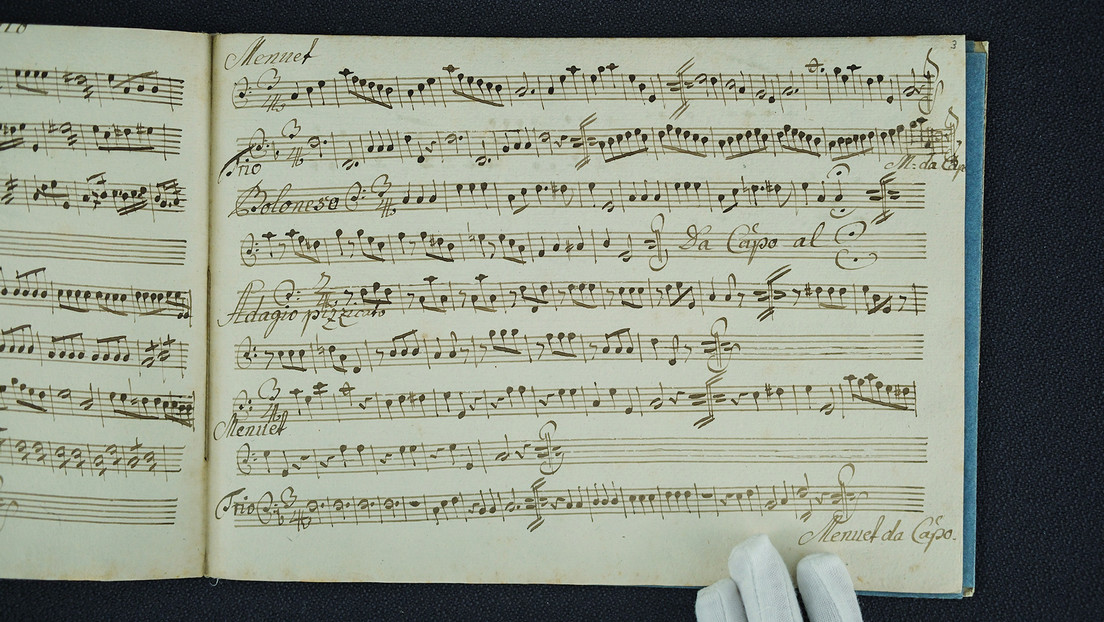 3
Menuet
3
4
3
4
Trio
M: da Cap
Poloneso
3
4
Da Capo al
3
4
Adagio pizzicato
3
4
Menuet
Trio
3
4
Menuet da Capo.